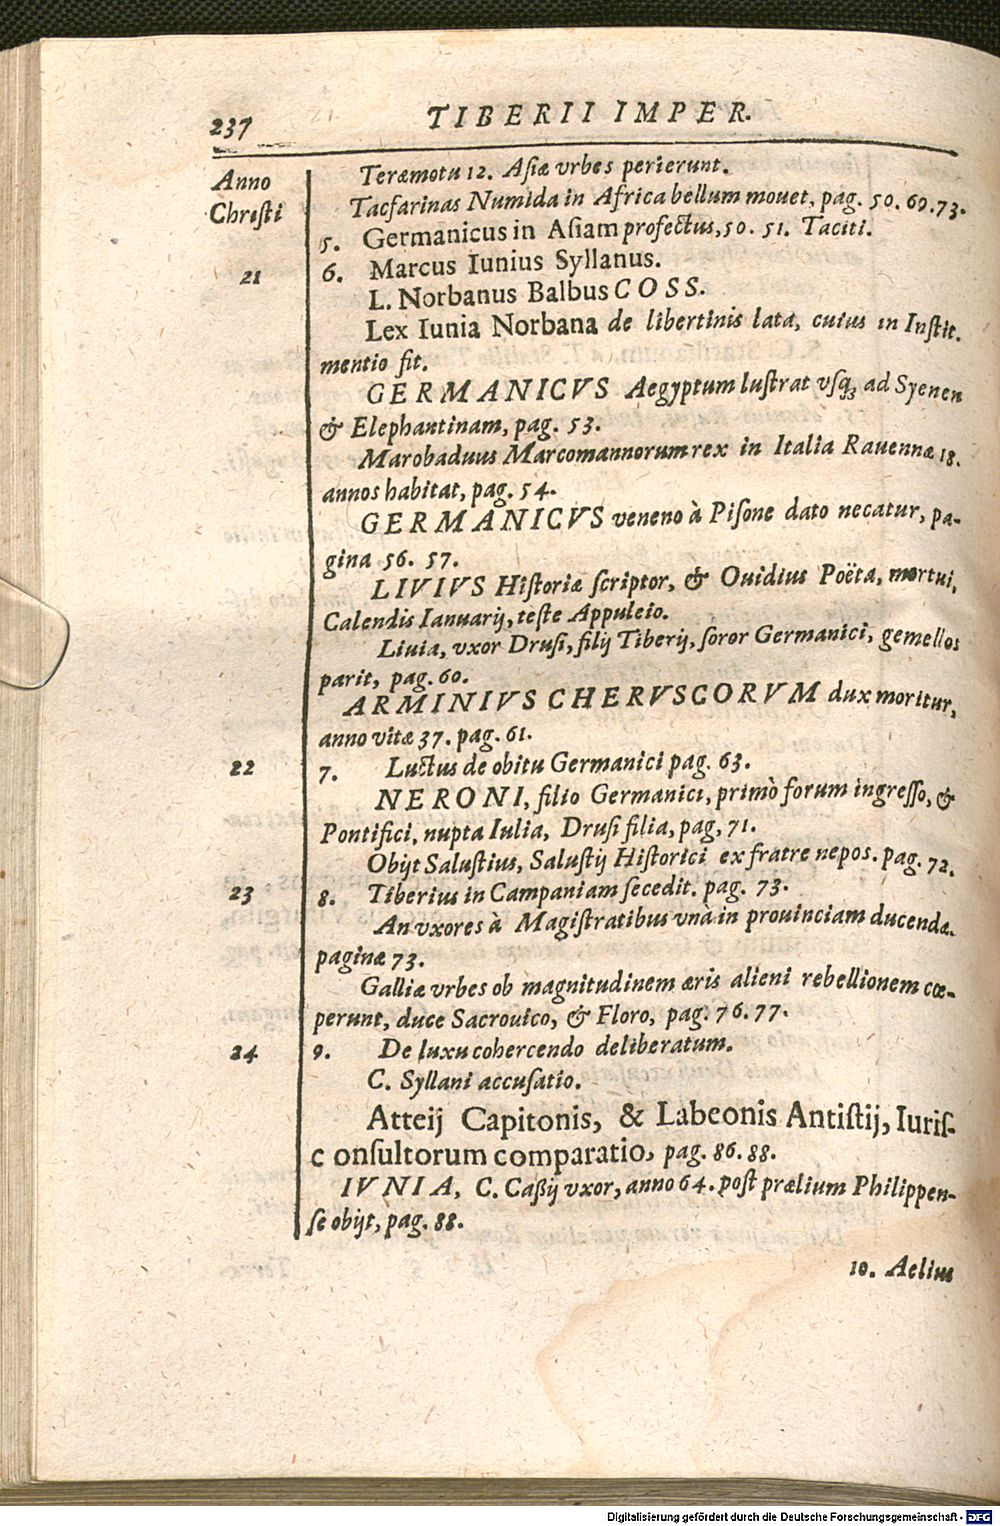 237 TIBERII IMPER.
Anno Teræmotu 12. Asiæ vrbes perierunt.
Christi Tacfarinas Numida in Africa bellum mouet, pag. 50. 69. 73.
5. Germanicus in Asiam profectus, 50. 51. Taciti.
21 6. Marcus Iunius Syllanus.
L. Norbanus Balbus COSS.
Lex Iunia Norbana de libertinis lata, cuius in Instit.
mentio fit.
GERMANICVS Aegyptum lustrat vsq; ad Syenen
& Elephantinam, pag. 53.
Marobaduus Marcomannorum rex in Italia Rauennæ 18.
annos habitat, pag. 54.
GERMANICVS veneno à Pisone dato necatur, pa-
gina 56. 57.
LIVIVS Historiæ scriptor, & Ouidius Poëta, mortui,
Calendis Ianuarij, teste Appuleio.
Liuia, vxor Drusi, filij Tiberij, soror Germanici, gemellos
parit, pag. 60.
ARMINIVS CHERVSCORVM dux moritur,
anno vitæ 37. pag. 61.
22 7. Luctus de obitu Germanici pag. 63.
NERONI, filio Germanici, primò forum ingresso, &
Pontifici, nupta Iulia, Drusi filia, pag, 71.
Obijt Salustius, Salustij Historici ex fratre nepos. pag. 72.
23 8. Tiberius in Campaniam secedit. pag. 73.
An vxores à Magistratibus vnà in prouinciam ducendæ.
paginæ 73.
Galliæ vrbes ob magnitudinem æris alieni rebellionem cœ-
perunt, duce Sacrouico, & Floro, pag. 76. 77.
24 9. De luxu cohercendo deliberatum.
C. Syllani accusatio.
Atteij Capitonis, & Labeonis Antistij, Iuris-
consultorum comparatio, pag. 86. 88.
IVNIA, C. Caßij vxor, anno 64. post prælium Philippen-
se obijt, pag. 88.
10. Aelius
Digitalisierung gefördert durch die Deutsche Forschungsgemeinschaft - DFG